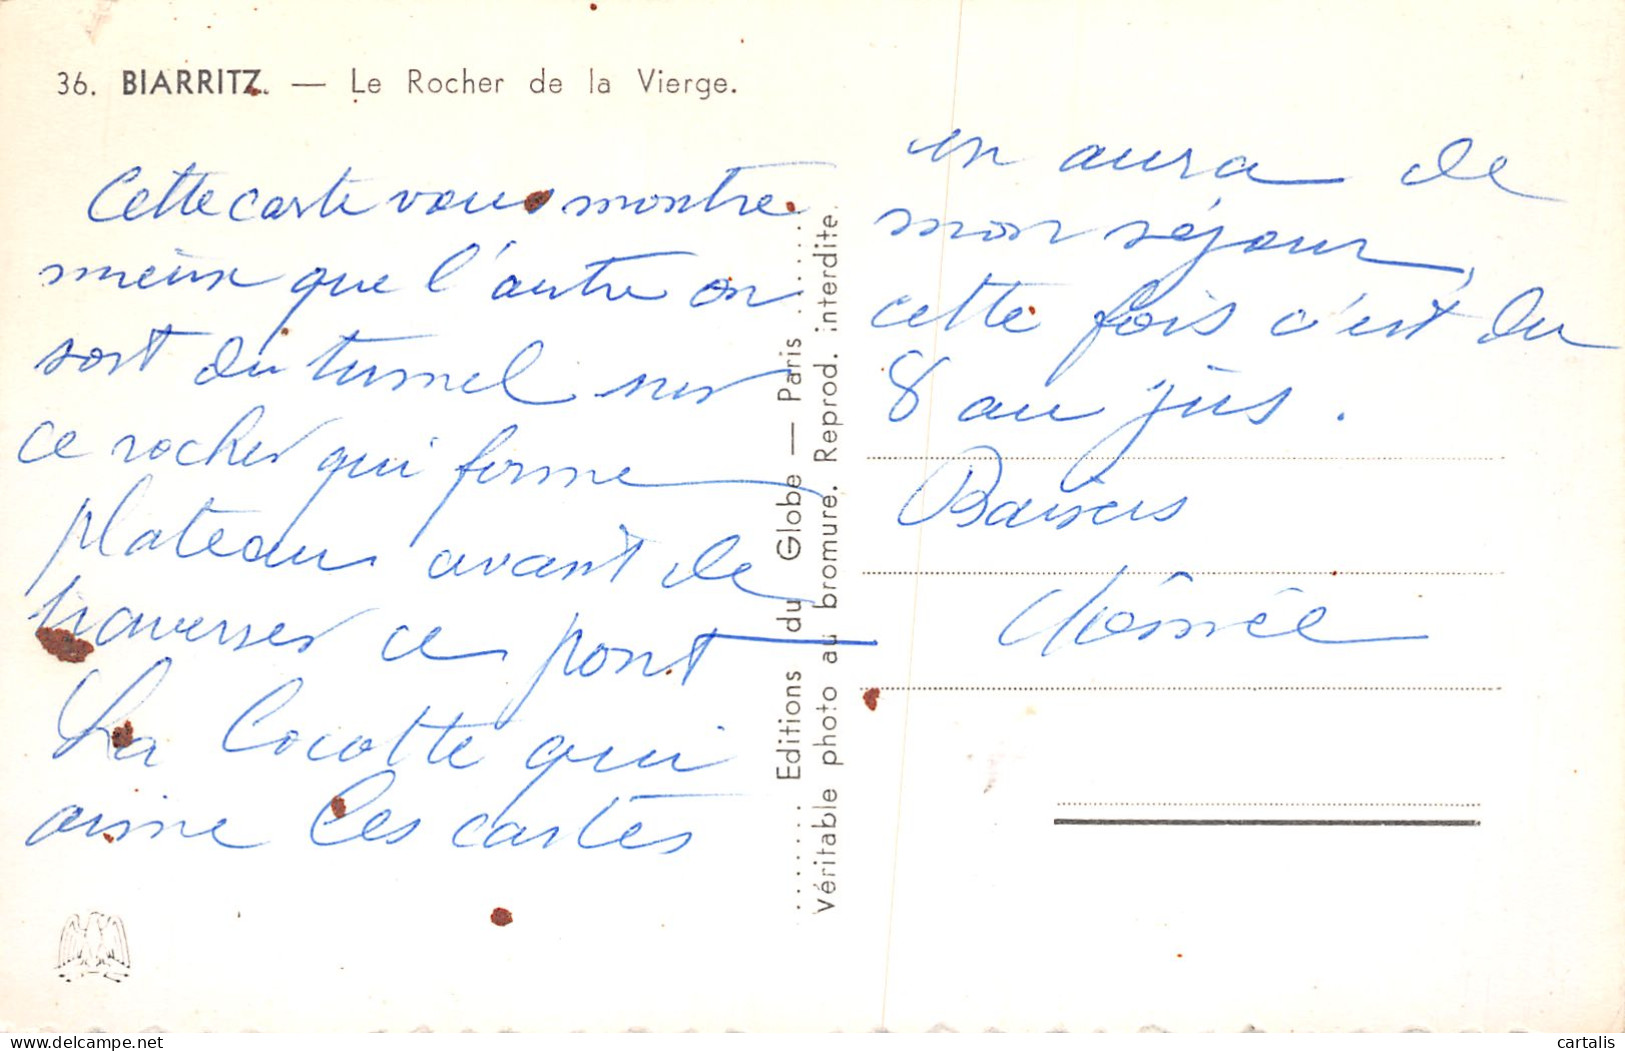 36. BIARRITZ. — Le Rocher de la Vierge.
Cette carte vous montre
mieux que l'autre on
sort du tunnel sur
ce rocher qui forme
plateau avant de
traverser ce pont
La Cocotte qui
aime les cartes
en aura de
mon séjour,
cette fois c'est du
8 au jus.
Baisers
Editions du Globe — Paris
Véritable photo au bromure. Reprod. interdite.
cartalis